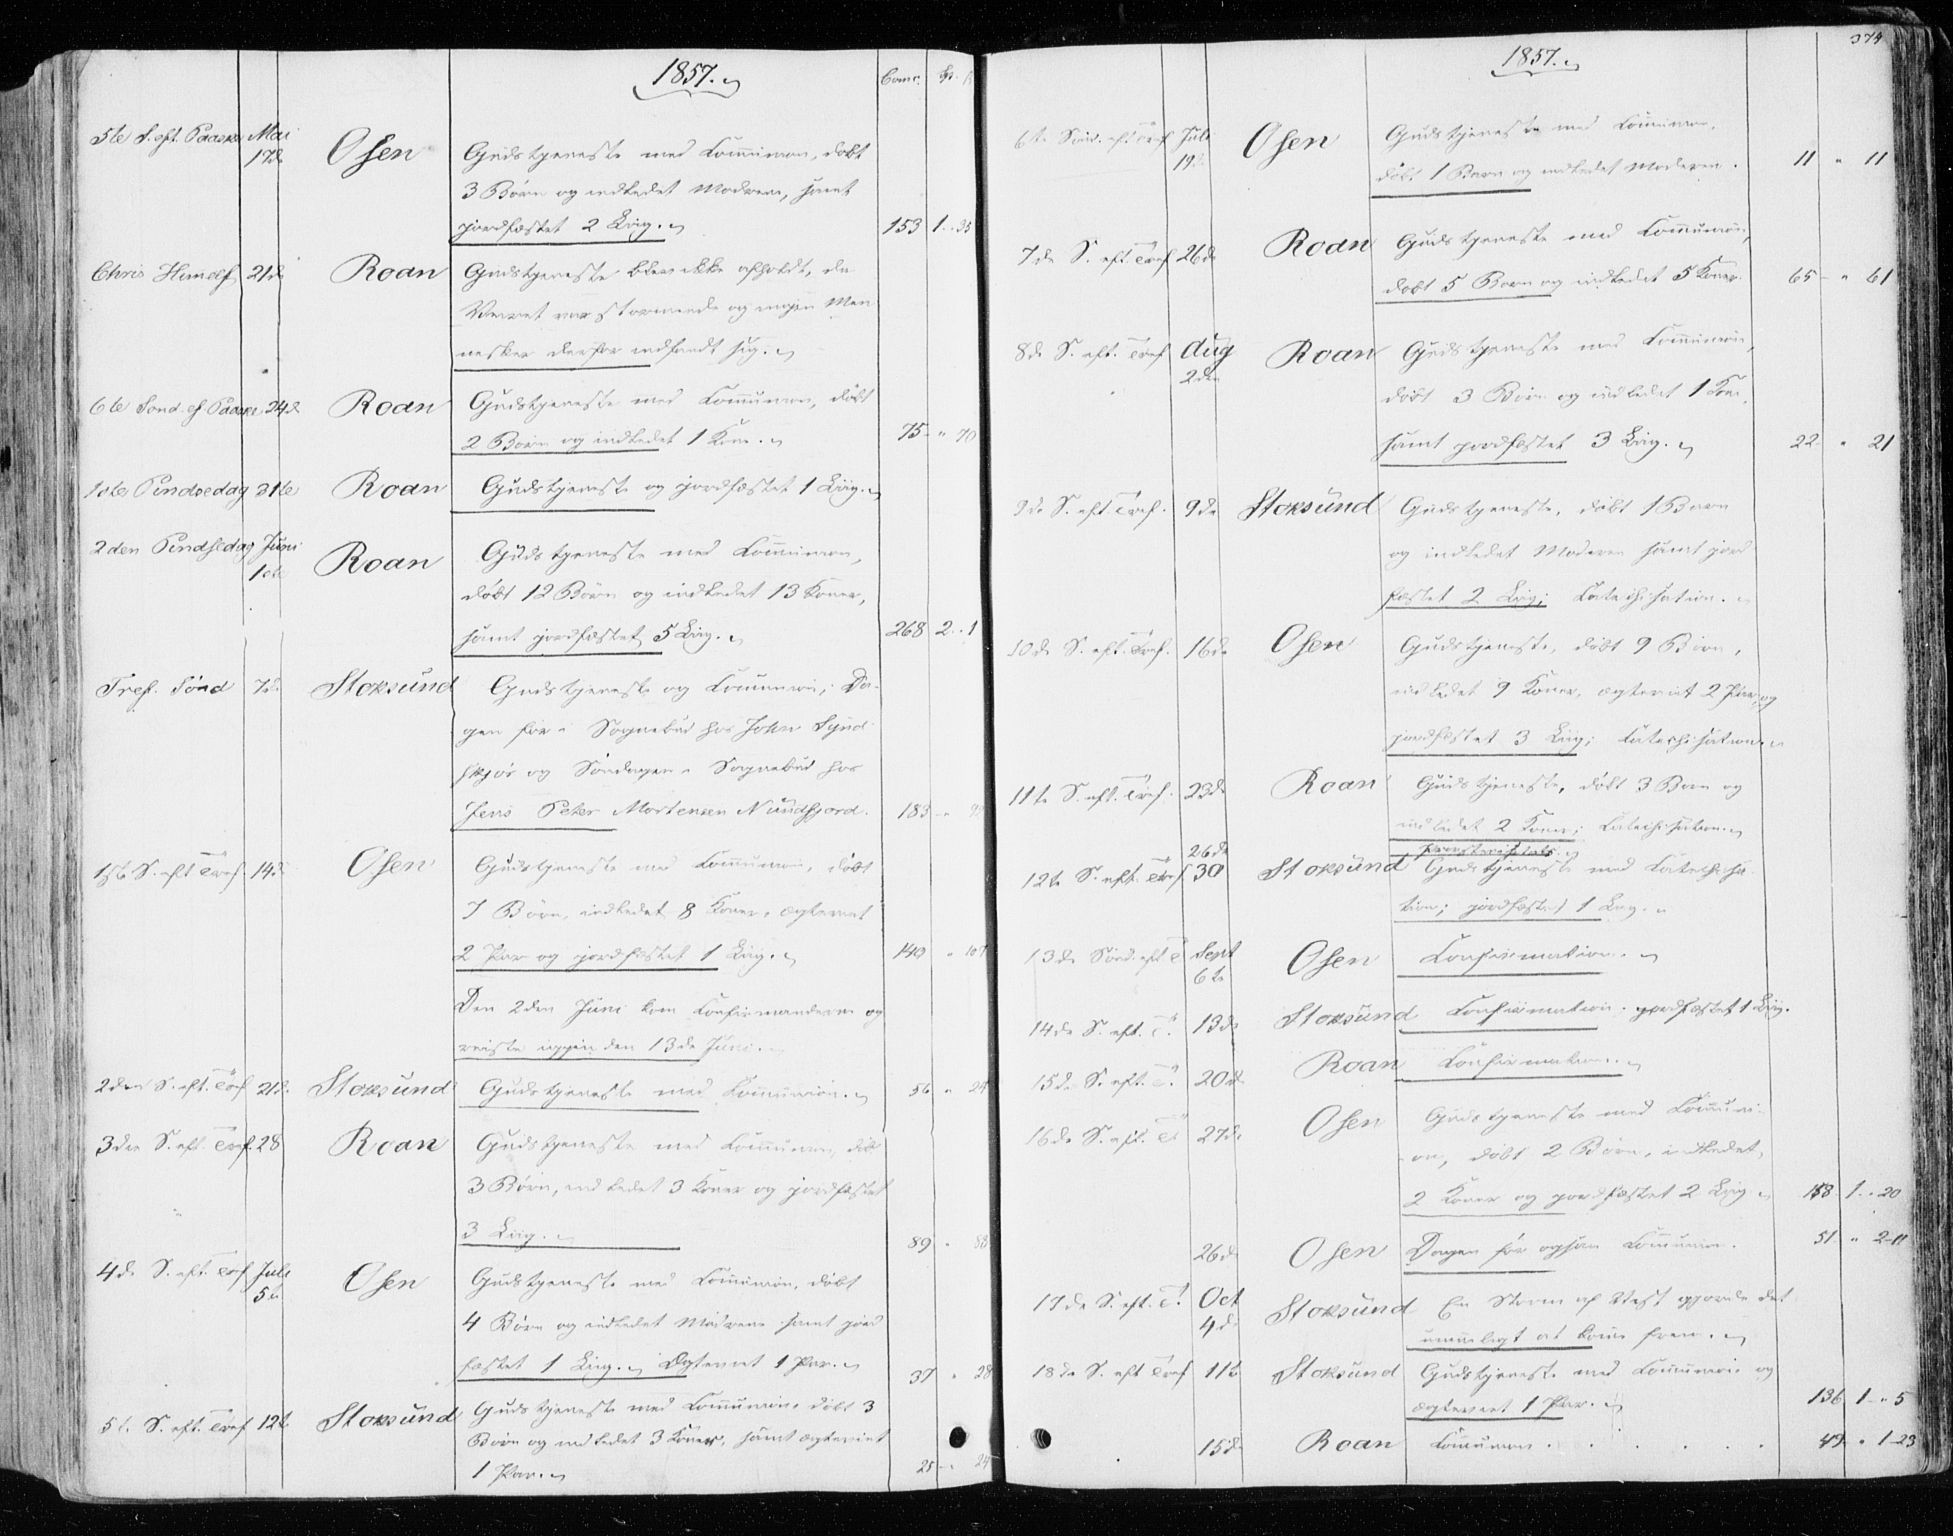 1857.
Comc. Sp.
5te S. eft. Paaske Mai 17de Osen Gudstjeneste med Communion, døbt
3 Børn og indledet Mødrene, samt
jordfæstet 2 Liig. 153 1 " 35
Chris Himelf 21de Roan Gudstjeneste blev ikke afholdt, da
Veiret var stormende og ingen Men
nesker derfor indfandt sig.
6te Sønd. ef Paaske 24d Roan Gudstjeneste med Communion, døbt
2 Børn og indledet 1 Kone. 75 - " 70
1ste Pindsedag 31te Roan Gudstjeneste og jordfæstet 1 Liig.
2den Pindsedag Juni 1ste Roan Gudstjeneste med Communion,
døbt 12 Børn og indledet 13 Koner,
samt jordfæstet 5 Liig. 268 2 " 1
Tref. Sønd 7de Stoksund Gudstjeneste og Communion; Da-
gen før i Sognebud hos John Synd-
skjør og Søndagen i Sognebud hos
Jens Peter Mortensen Nundfjord. 183
1ste S. eft Tref. 14d Osen Gudstjeneste med Communion, døbt
7 Børn, indledet 8 Koner, ægteviet
2 Par og jordfæstet 1 Liig. 140 " 107
Den 2den Juni kom Confirmanderne og
reiste igjen den 13de Juni.
2den S. eft. Tref 21d. Stoksund Gudstjeneste med Communion. 56 "
3die S. eft. Tref. 28 Roan Gudstjeneste med Communion, døbt
3 Børn, indledet 3 Koner og jordfæstet
3 Liig. 89 " 88
4de S. eft. Tref Juli 5te Osen Gudstjeneste med Communion, døbt
4 Børn og indledet Mødrene samt jord
fæstet 1 Liig. Ægteviet 1 Par. 37 " 28
5te S. eft. Tref 12te Stoksund Gudstjeneste med Communion, døbt 3
Børn og indledet 3 Koner, samt ægteviet
1 Par. 25 - " 24
374
1857.
6te Sønd. eft Tref Juli 19de Osen Gudstjeneste med Communion,
døbt 1 Barn og indledet Moderen. 11 " 11
7de S. eft Tref 26de Roan Gudstjeneste med Communion,
døbt 5 Børn og indledet 5 Koner. 65 - " 61
8de S. eft. Tref Aug 2den Roan Gudstjeneste med Communion,
døbt 3 Børn og indledet 1 Kone,
samt jordfæstet 3 Liig. 22 " 21
9de S. eft. Tref. 9de Stoksund Gudstjeneste, døbt 1 Barn
og indledet Moderen samt jord
fæstet 2 Liig; Catechisation.
10de S. eft. Tref. 16de Osen Gudstjeneste, døbt 9 Børn,
indledet 9 Koner, ægteviet 2 Par, og
jordfæstet 3 Liig; Catechisation.
11te S. eft. Tref. 23de Roan Gudstjeneste, døbt 3 Børn og
indledet 2 Koner; Catechisation.
26de
12te S. eft. Tref. 30 Stoksund Gudstjeneste med Catechisa-
tion; jordfæstet 1 Liig.
13de Sønd. eft T Sept 6te Osen Confirmation.
14de S. eft. T. 13de Stoksund Confirmation. jordfæstet 1 Liig.
15de S. eft. T. 20de Roan Confirmation.
16de S. eft. T 27de Osen Gudstjeneste med Communi-
on, døbt 2 Børn, indledet,
2 Koner og jordfæstet 2 Liig 158 1 " 20
26de Osen Dagen før ogsaa Communion. 51 " 2-11
17de S. eft. T. Oct 4de Stoksund En Storm af Vest gjorde det
umueligt at komme frem.
18de S. eft Tref 11te Stoksund Gudstjeneste med Communion og
ægteviet 1 Par. 136 1 - " 5
15de Roan Communion . . . . . . 49 " 1-23